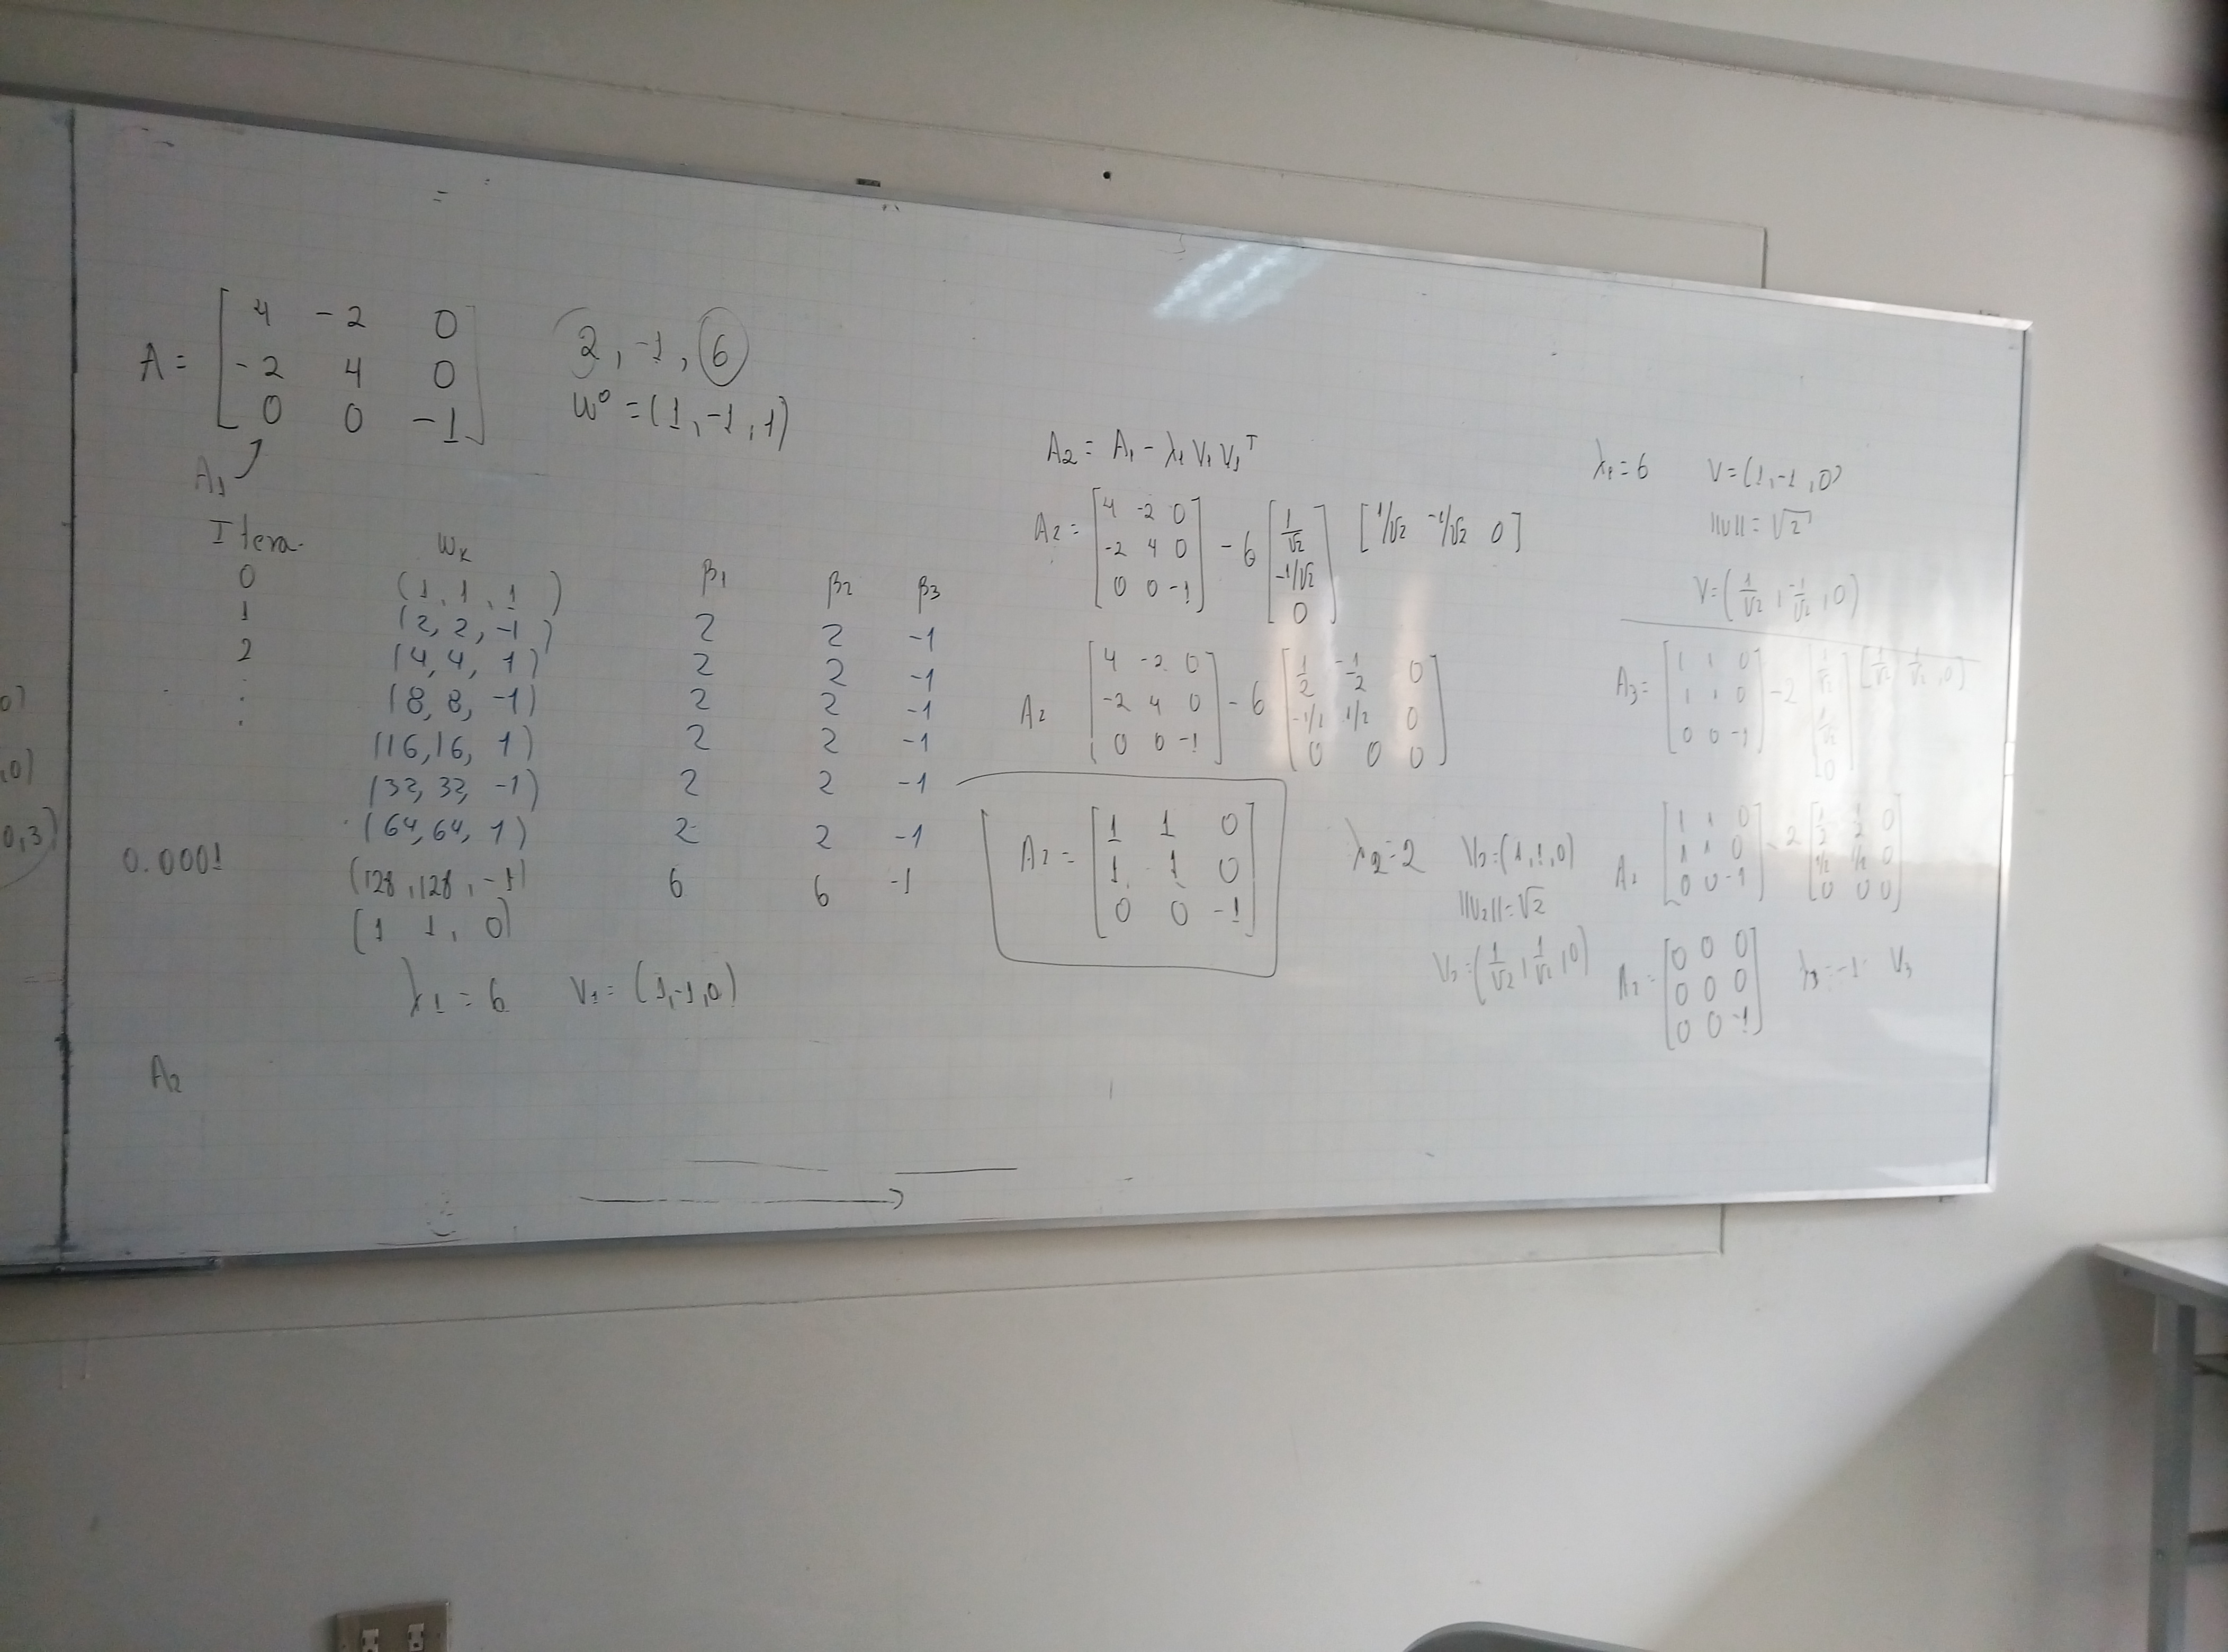 A = [ 4 -2 0
-2 4 0
0 0 -1 ]
A₁
2, -1, 6
W⁰ = (1, -1, 1)
Itera. Wₖ β₁ β₂ β₃
0 (1, 1, 1)
1 (2, 2, -1) 2 2 -1
2 (4, 4, 1) 2 2 -1
: (8, 8, -1) 2 2 -1
(16, 16, 1) 2 2 -1
(32, 32, -1) 2 2 -1
(64, 64, 1) 2 2 -1
0.0001 (128, 128, -1) 6 6 -1
(1 1, 0)
λ₁ = 6 V₁ = (1, -1, 0)
A₂
A₂ = A₁ - λ₁ V₁ V₁ᵀ
A₂ = [ 4 -2 0
-2 4 0
0 0 -1 ] - 6 [ 1/√2
-1/√2
0 ] [ 1/√2 -1/√2 0 ]
A₂ [ 4 -2 0
-2 4 0
0 0 -1 ] - 6 [ 1/2 -1/2 0
-1/2 1/2 0
0 0 0 ]
A₂ = [ 1 1 0
1 1 0
0 0 -1 ]
λ₂ = 2 V₂ = (1, 1, 0)
||V₂|| = √2
V₂ = (1/√2, 1/√2, 0)
λ₁ = 6 V = (1, -1, 0)
||V|| = √2
V = (1/√2, -1/√2, 0)
A₃ = [ 1 1 0
1 1 0
0 0 -1 ] - 2 [ 1/√2
1/√2
0 ] [ 1/√2 1/√2, 0 ]
[ 1 1 0
1 1 0
0 0 -1 ] - 2 [ 1/2 1/2 0
1/2 1/2 0
0 0 0 ]
[ 0 0 0
0 0 0
0 0 -1 ] λ₃ = -1 V₃
0)
,0)
0,3)